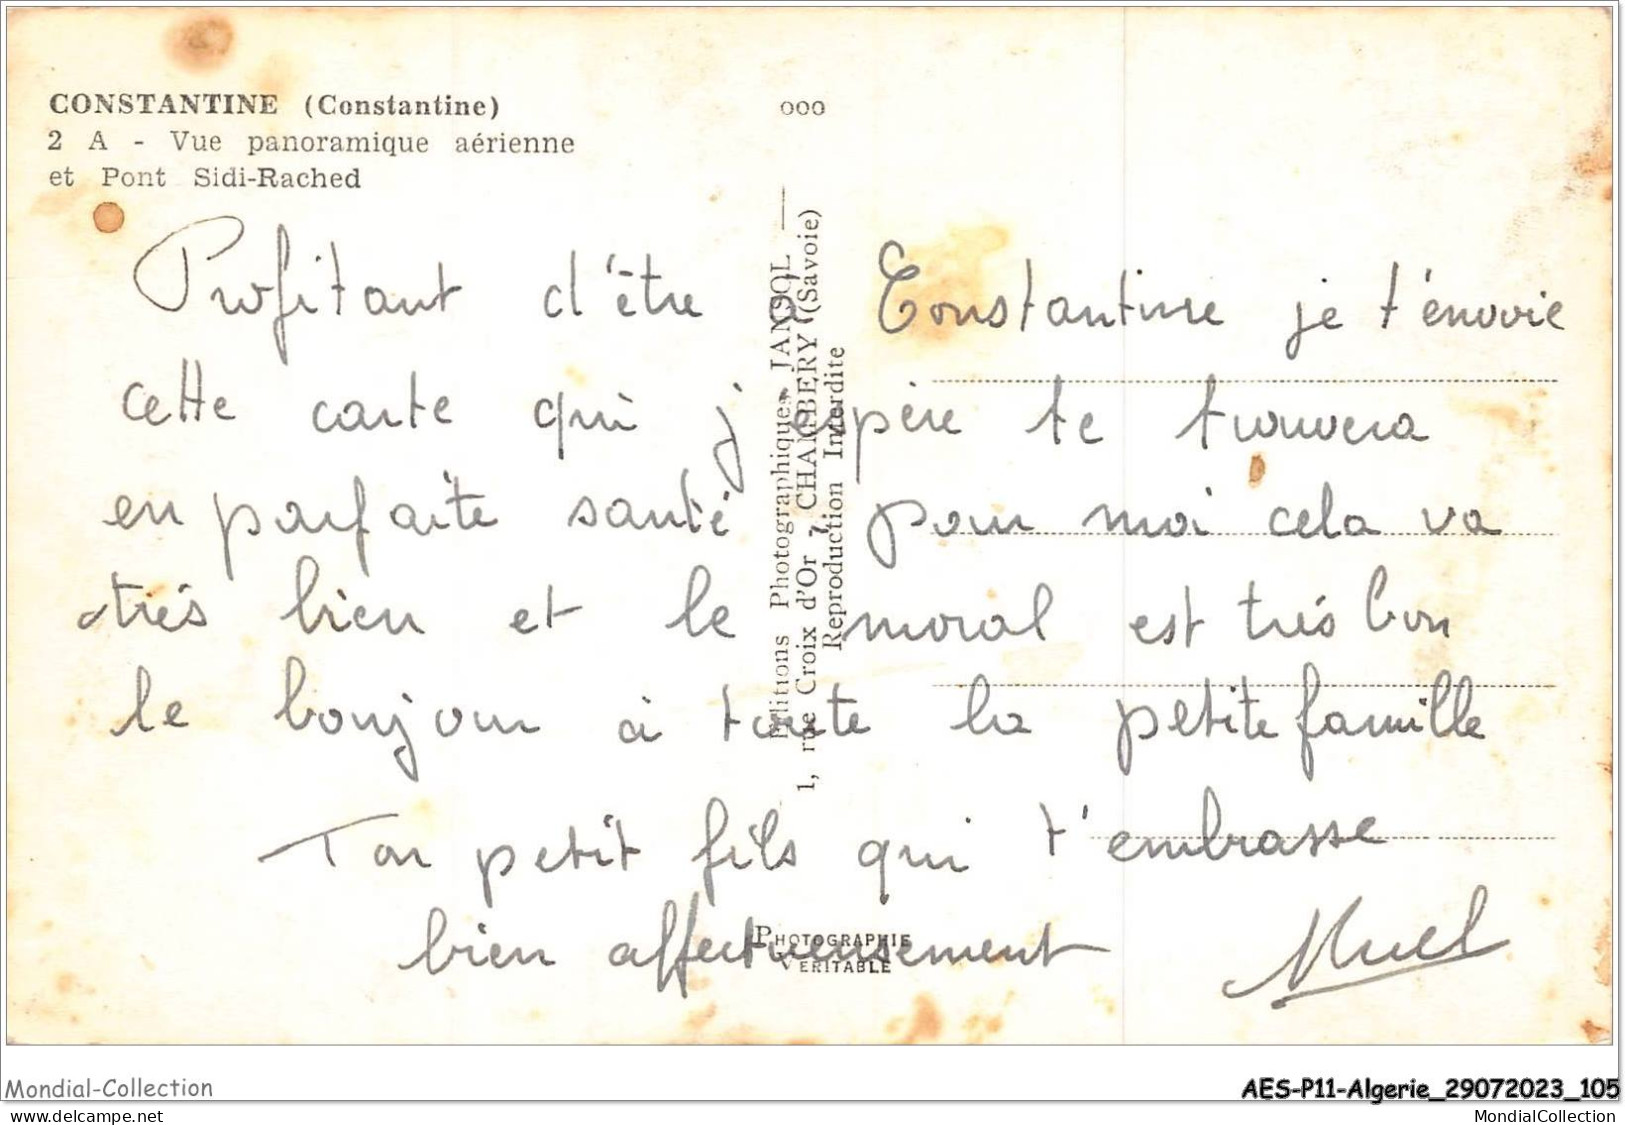 CONSTANTINE (Constantine)
2 A - Vue panoramique aérienne
et Pont Sidi-Rached
ooo
Profitant d'être à Constantine je t'envoie
cette carte qui j'espère te trouvera
en parfaite santé, pour moi cela va
très bien et le moral est très bon
le bonjour à toute la petite famille
Ton petit fils qui t'embrasse
bien affectueusement
Editions Photographiques JANSOL
1, rue Croix d'Or - CHAMBERY (Savoie)
Reproduction Interdite
PHOTOGRAPHIE
VERITABLE
Mondial-Collection
AES-P11-Algerie_29072023_105
www.delcampe.net
MondialCollection